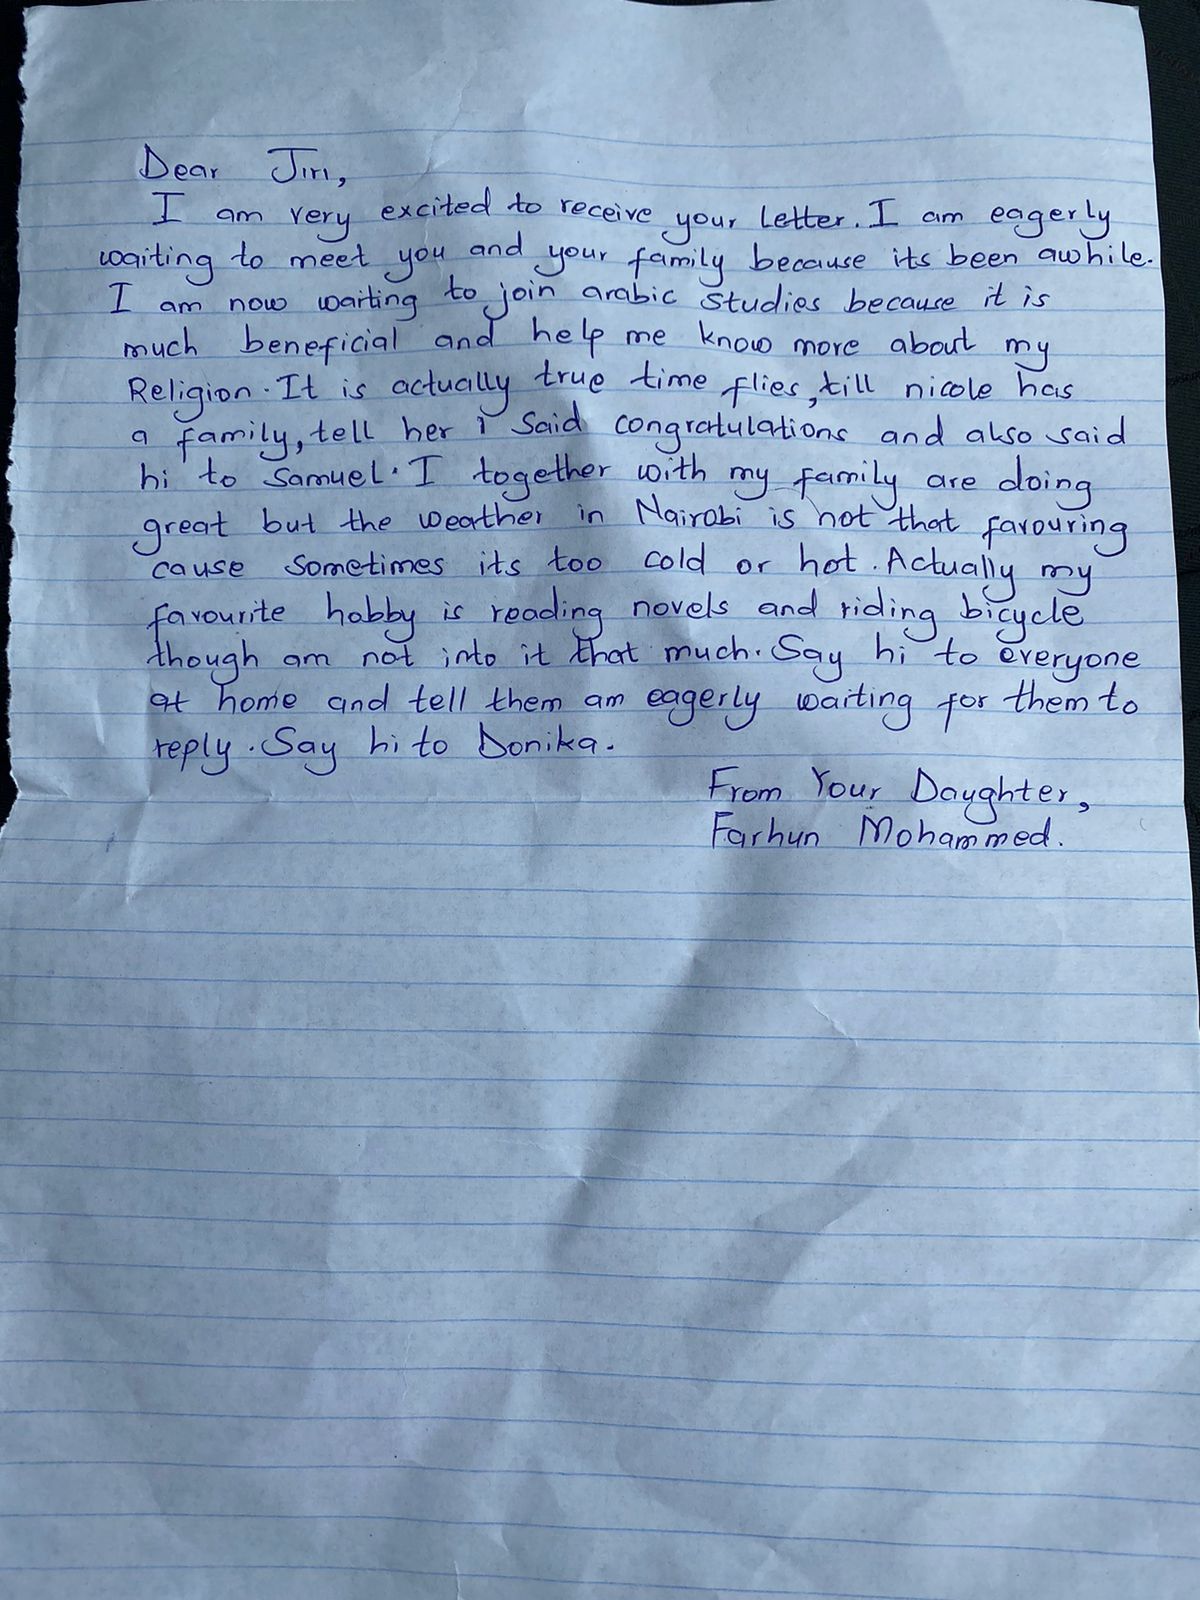 Dear Jiri,
I am very excited to receive your letter. I am eagerly
waiting to meet you and your family because its been awhile.
I am now waiting to join arabic studies because it is
much beneficial and help me know more about my
Religion. It is actually true time flies, till nicole has
a family, tell her i said congratulations and also said
hi to Samuel. I together with my family are doing
great but the weather in Nairobi is not that favouring
cause sometimes its too cold or hot. Actually my
favourite hobby is reading novels and riding bicycle
though am not into it that much. Say hi to everyone
at home and tell them am eagerly waiting for them to
reply. Say hi to Donika.
From Your Daughter,
Farhun Mohammed.